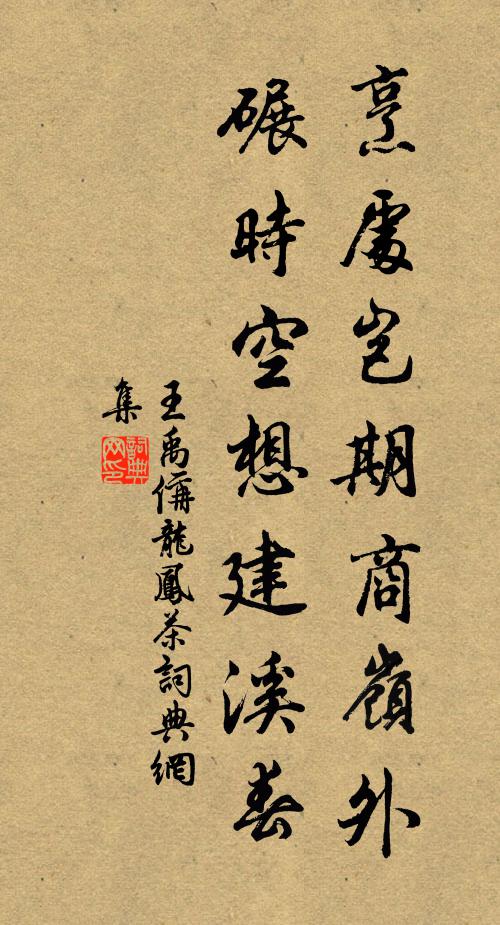 烹處豈期商嶺外
碾時空想建溪春
王禹偁龍鳳茶詞典網
集
詞典
网印